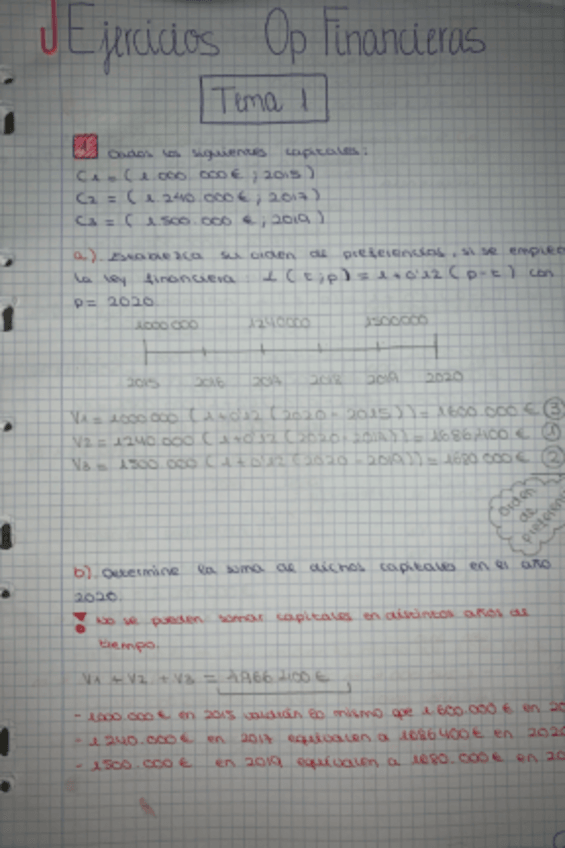 Ejercicios Op Financieras
Tema 1
1 Dados los siguientes capitales:
C1 = (1.000.000€; 2015)
C2 = (1.240.000€; 2017)
C3 = (1.500.000€; 2019)
a). Establezca su orden de preferencias, si se emplea
la ley financiera L(t;p) = 1+0'12(p-t) con
p= 2020
1000000 1240000 1500000
2015 2016 2017 2018 2019 2020
V1 = 1000000 (1+0'12(2020-2015)) = 1600.000€ 3
V2 = 1240.000 (1+0'12(2020-2017)) = 1686400€ 1
V3 = 1500.000 (1+0'12(2020-2019)) = 1680000€ 2
Orden
de
preferencia
b). Determine la suma de dichos capitales en el año
2020.
! No se pueden sumar capitales en distintos años de
tiempo.
V1 + V2 + V3 = 4966400€
- 1000.000€ en 2015 valdrán lo mismo que 1.600.000€ en 20
- 1.240.000€ en 2017 equivalen a 1686400€ en 202
- 1500.000€ en 2019 equivalen a 1680.000€ en 20